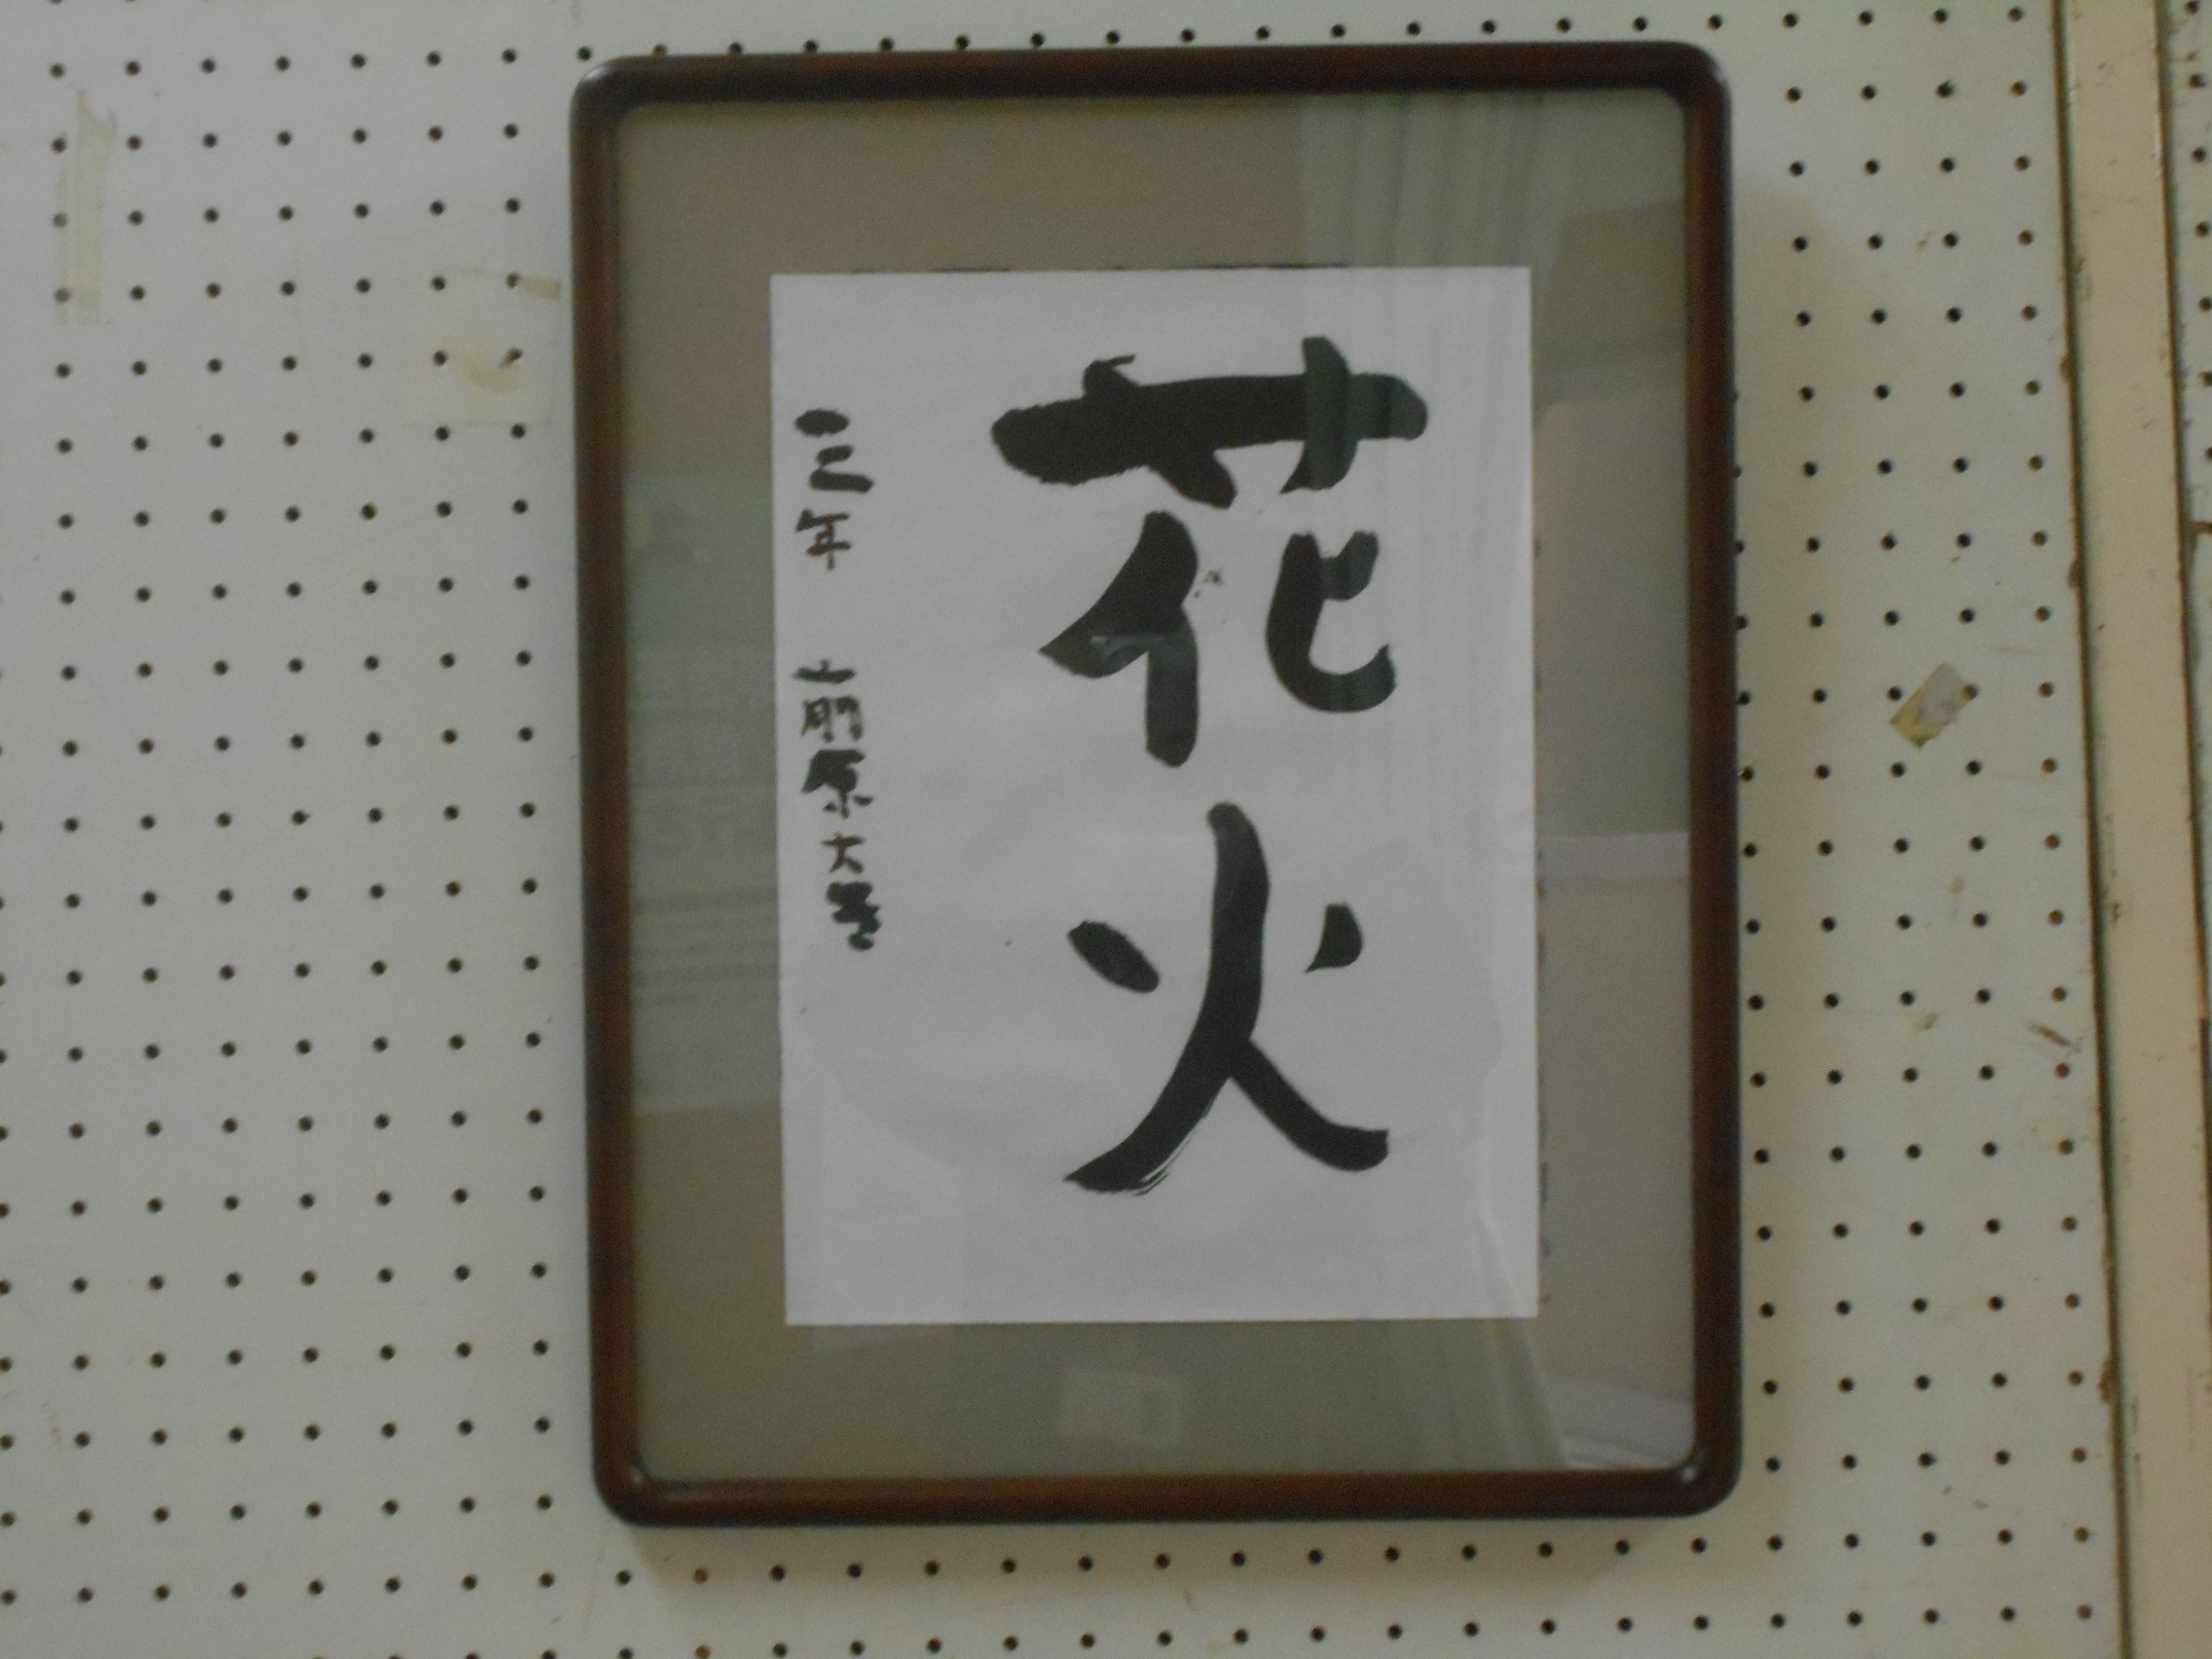 花火
三年 前原大